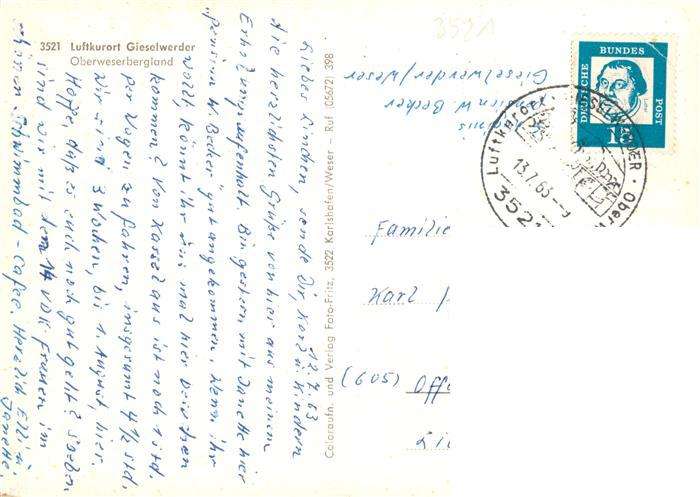 3521 Luftkurort Gieselwerder
Oberweserbergland
3521
Pension W. Becker
Gieselwerder/Weser
DEUTSCHE
BUNDES
POST
Luther
15
Luftkurort
GIESELWERDER
13.7.63
3521
12.7.63
Liebes Linchen, sende Dir, Karl u. Kindern
die herzlichsten Grüße von hier aus meinem
Erholungsaufenthalt. Bin gestern mit Janette hier
"Pension W. Becker" gut angekommen. Wenn ihr
wollt, könnt ihr uns mal hier besuchen
kommen? Von Kassel aus ist noch 1 Std.
per Wagen zu fahren, insgesamt 4 1/2 Std.
Wir sind 3 Wochen, bis 1. August, hier.
Hoffe, daß es euch noch gut geht?
sind wir mit den 14 VdK-Frauen im
Schwimmbad-Cafee. Herzlich Elli u.
Janette.
Coloraufn. und Verlag Foto-Fritz, 3522 Karlshafen/Weser - Ruf (05672) 398
Familie
Karl
(605) Off